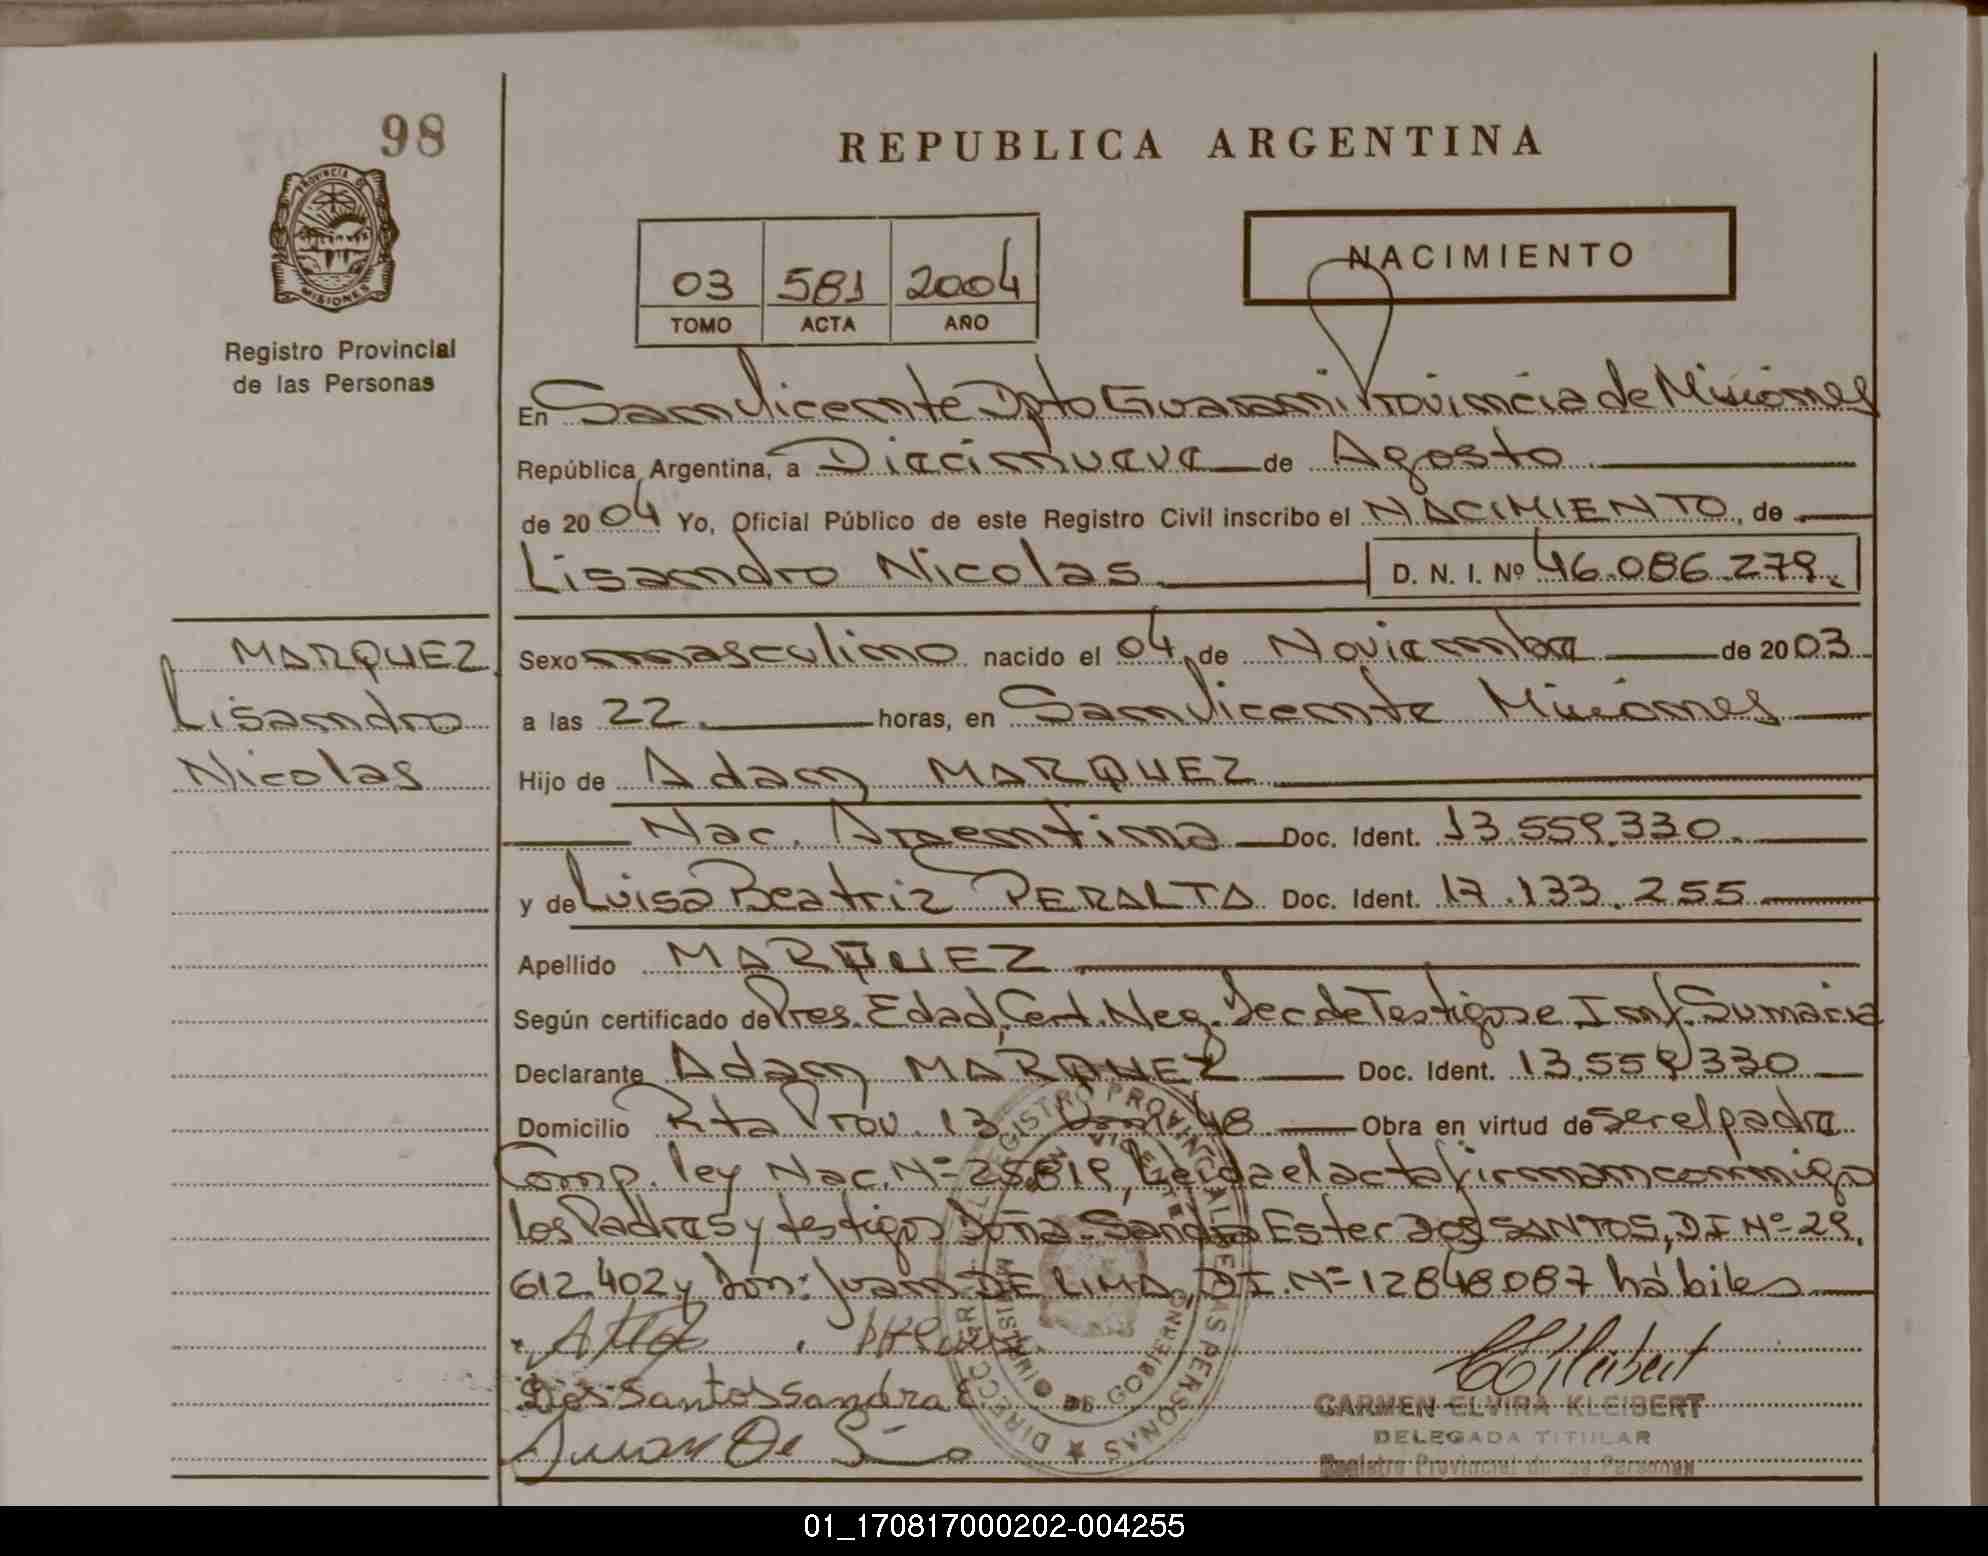 98
PROVINCIA DE
MISIONES
Registro Provincial
de las Personas
REPUBLICA ARGENTINA
NACIMIENTO
03 581 2004
TOMO ACTA AÑO
En San Vicente Dpto Guarani Provincia de Misiones
República Argentina, a Diecinueve de Agosto
de 2004 Yo, Oficial Público de este Registro Civil inscribo el NACIMIENTO, de
Lisandro Nicolas D. N. I. Nº 46.086.279.
MARQUEZ
Lisandro
Nicolas
Sexo masculino nacido el 04 de Noviembre de 2003
a las 22 horas, en San Vicente Misiones
Hijo de Adam MARQUEZ
Nac. Argentina Doc. Ident. 13.559.330.
y de Luisa Beatriz PERALTA Doc. Ident. 17.133.255
Apellido MARQUEZ
Según certificado de Pres. Edad, Cert. Neg. Dec de Testigos e Inf. Sumaria
Declarante Adam MARQUEZ Doc. Ident. 13.559330
Domicilio Rta Prov. 13 48 Obra en virtud de ser el padre
Comp. ley Nac. Nº 25.819, Leida el acta firman conmigo
los Padres y testigos Doña: Sandra Ester dos SANTOS, DI Nº 29.
612.402 y Don: Juan DE LIMA, DI. Nº 12848087 hábiles
Dos Santos Sandra E
Juan De
CARMEN ELVIRA KLEIBERT
DELEGADA TITULAR
Registro Provincial de las Personas
01_170817000202-004255